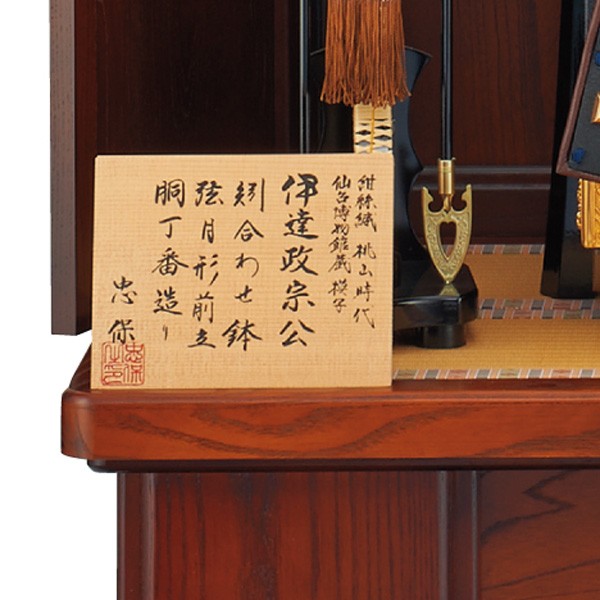 紺糸縅 桃山時代
仙台博物館蔵 模写
伊達政宗公
矧合わせ鉢
弦月形前立
胴丁番造り
忠保